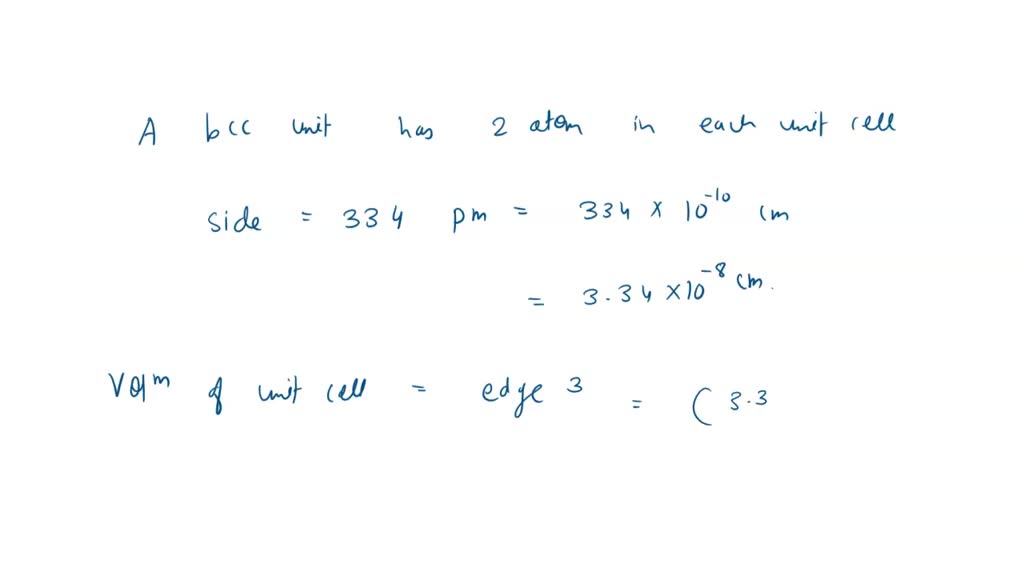 A bcc unit has 2 atom in each unit cell
side = 334 pm = 334 × 10⁻¹⁰ cm
= 3.34 × 10⁻⁸ cm.
Volm of unit cell = edge 3 = ( 3.3